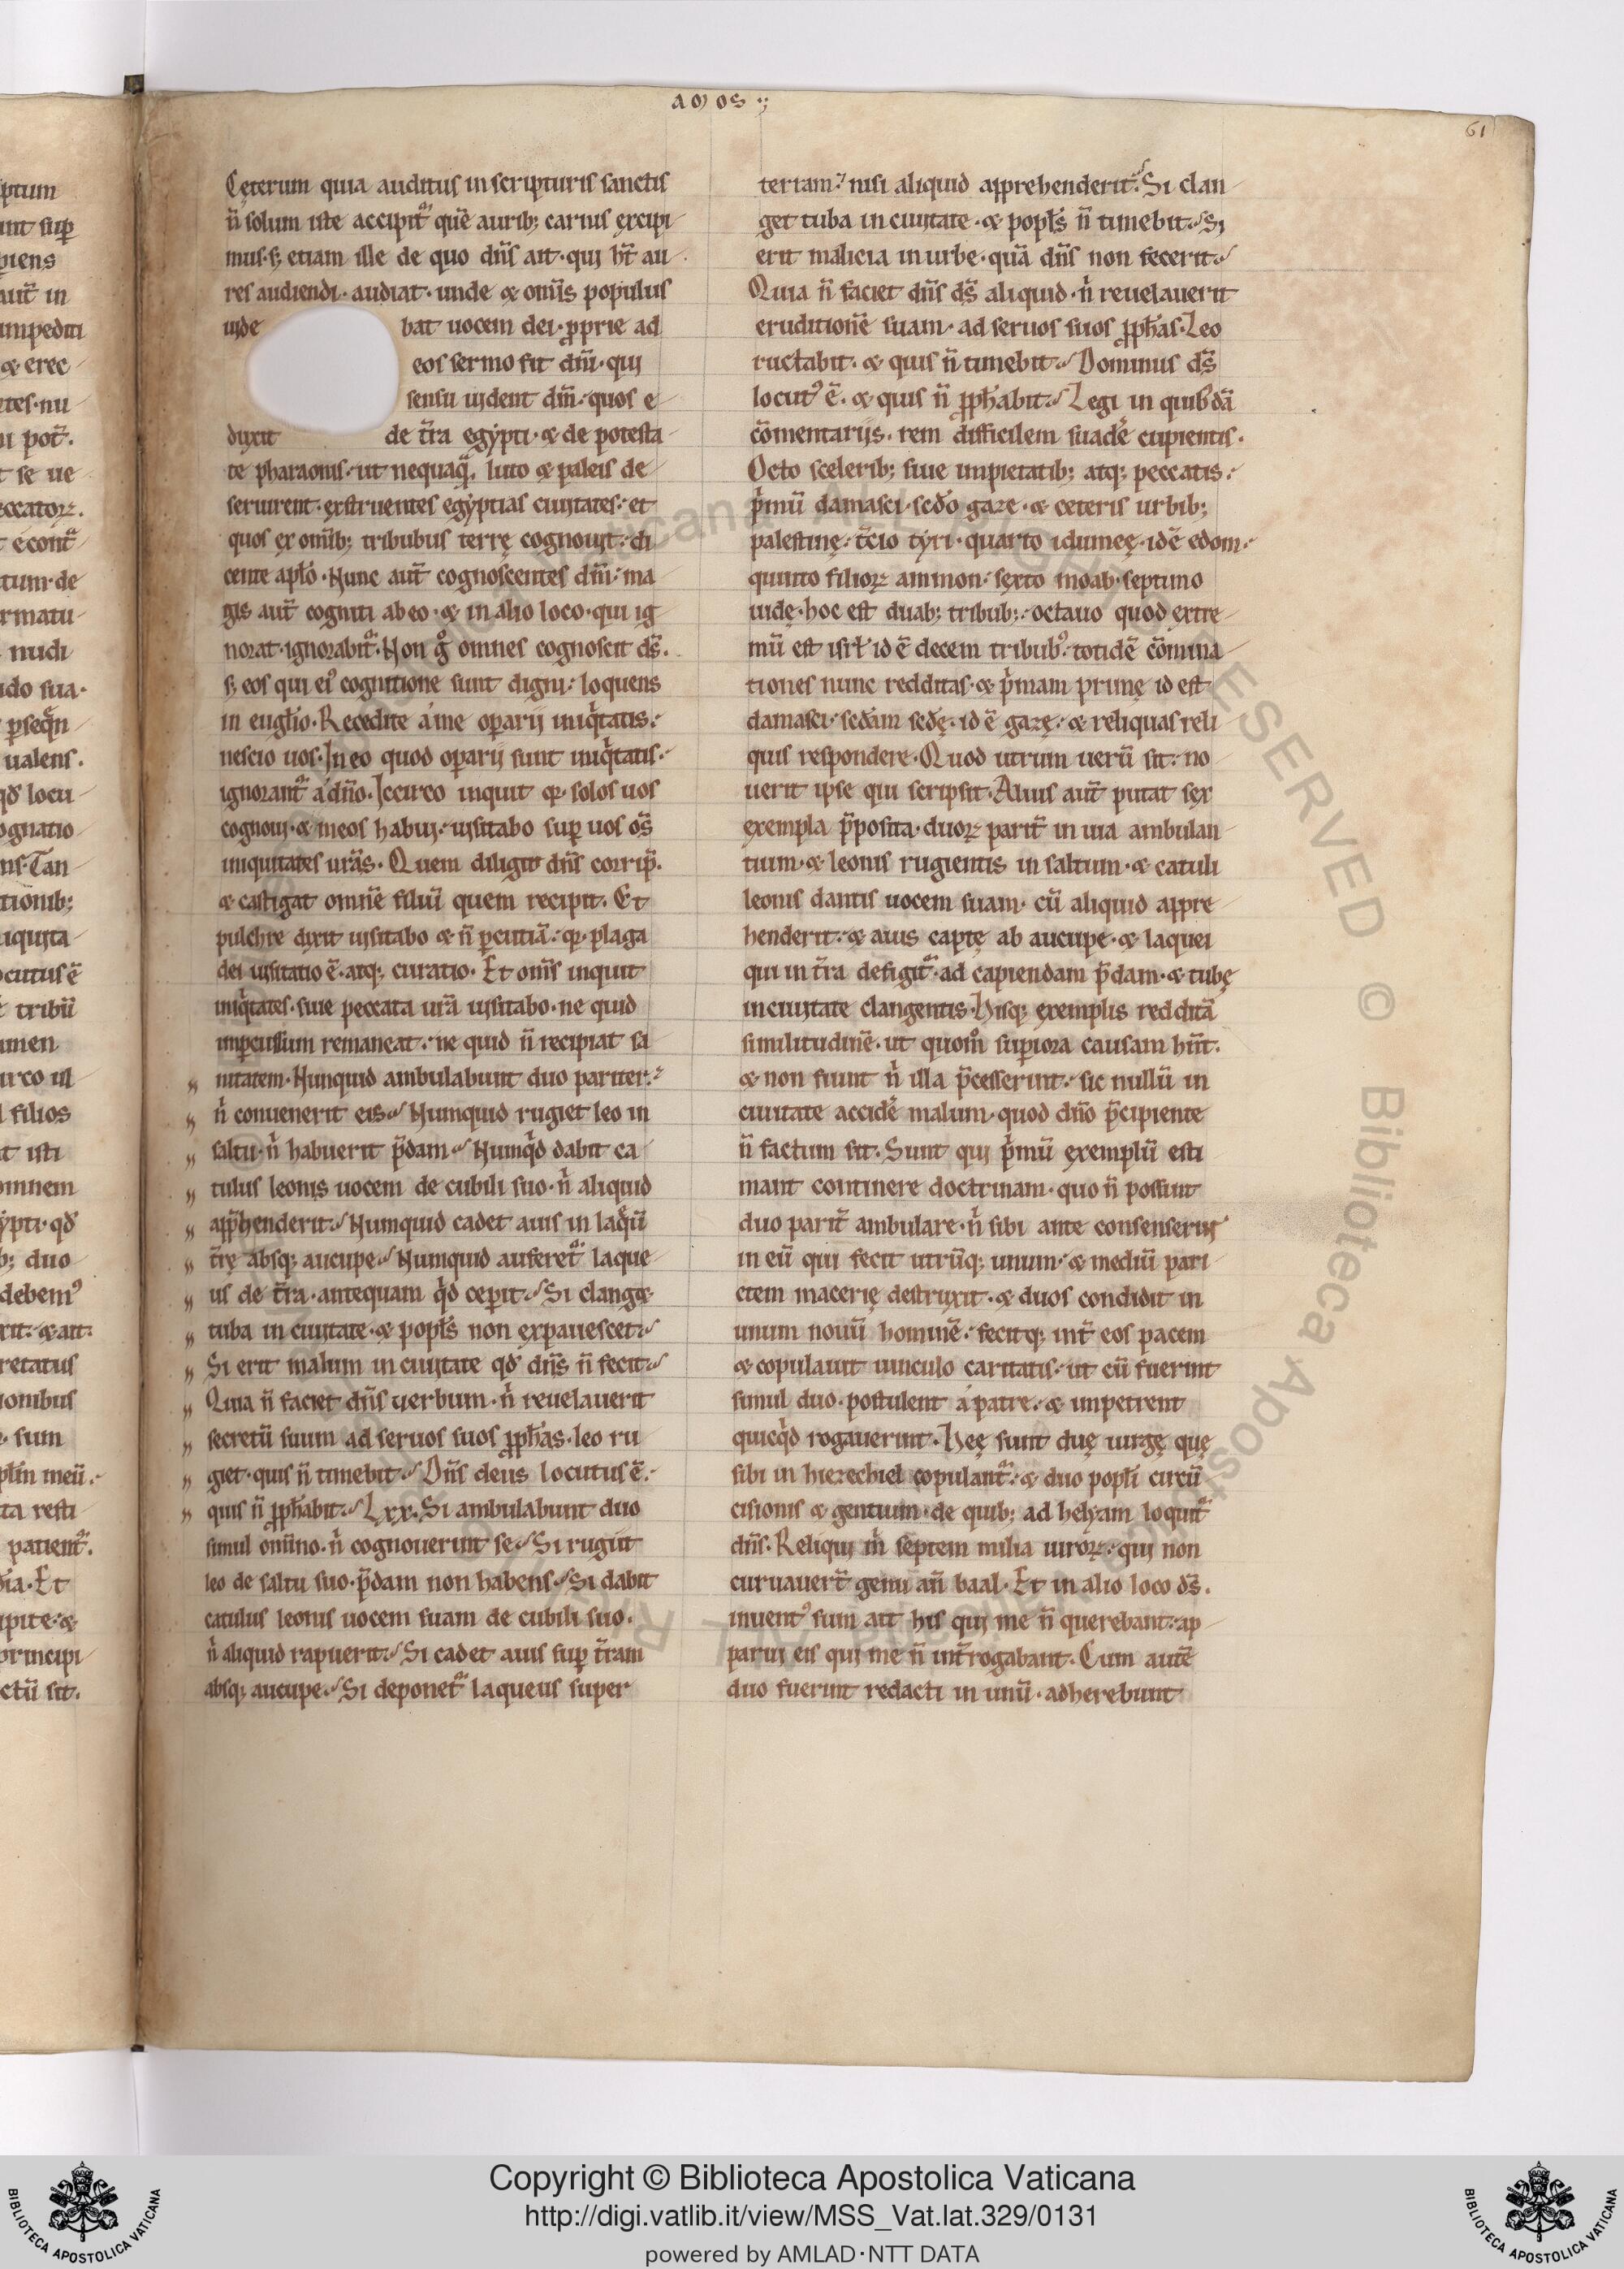 AMOS ·;
61
Cęterum quia auditus in scripturis sanctis
n̄ solum iste accipit᷑ quē aurib; carnis excipi-
mus· s; etiam ille de quo dn̄s ait· qui ht̄ au-
res audiendi· audiat· unde & om̄is populus
uide bat uocem dei· ꝓprie ad
eos sermo fit dn̄i· qui
sensu uident dn̄m· quos e-
duxit de t̄ra egypti· & de potesta-
te pharaonis· ut nequaq̄ luto & paleis de-
seruirent· exstruentes egyptias ciuitates· et
quos ex om̄ib; tribubus terrę cognouit· di-
cente apl̄o· Nunc aut̄ cognoscentes dm̄· ma-
gis aut̄ cogniti ab eo· & in alio loco· qui ig-
norat· ignorabit᷑· Non g° omnes cognoscit ds̄.
s; eos qui ei⁹ cognitione sunt digni· loquens
in eugl̄io· Recedite a me oꝑarij iniq̇tatis·
nescio uos· In eo quod oꝑarij sunt iniq̇tatis·
ignorant᷑ a dn̄o· Iccirco inquit q̄· solos uos
cognoui· & meos habui· uisitabo suꝑ uos os̄
iniquitates ur̄as· Quem diligit dn̄s corrip̄.
& castigat omnē filiū quem recipit. Et
pulchre dixit uisitabo & n̄ ꝑcutiā· q̄· plaga
dei uisitatio ē· atq; curatio· Et om̄s inquit
iniq̇tates· siue peccata ur̄a uisitabo· ne quid
imꝑcussum remaneat· ne quid n̄ recipiat sa-
nitatem· Nunquid ambulabunt duo pariter·
n̄ conuenerit eis· Numquid rugiet leo in
saltu· n̄ habuerit p̄dam· Numq̇d dabit ca-
tulus leonis uocem de cubili suo· n̄ aliquid
app̄henderit· Numquid cadet auis in laq̄ū
t̄rę absq; aucupe· Numquid auferet᷑ laque-
us de t̄ra· antequam q̇d ceperit· Si clanget
tuba in ciuitate· & popl̄s non expauescet·
Si erit malum in ciuitate qd̄ dn̄s n̄ fecit·
Quia n̄ faciet dn̄s uerbum· n̄ reuelauerit
secretū suum ad seruos suos ꝓph̄as· leo ru-
giet· quis n̄ timebit· Dn̄s deus locutus ē·
quis n̄ ꝓph̄abit· Lxx· Si ambulabunt duo
simul om̄ino· n̄ cognouerint se· Si rugiit
leo de saltu suo· p̄dam non habens· Si dabit
catulus leonis uocem suam de cubili suo·
n̄ aliquid rapuerit· Si cadet auis suꝑ t̄ram
absq; aucupe· Si deponet᷑ laqueus super
terram· nisi aliquid apprehenderit· Si clan-
get tuba in ciuitate· & popl̄s n̄ timebit· Si
erit malicia in urbe· quā dn̄s non fecerit·
Quia n̄ faciet dn̄s ds̄ aliquid· n̄ reuelauerit
eruditionē suam· ad seruos suos ꝓph̄as· Leo
ructabit· & quis n̄ timebit· Dominus ds̄
locut⁹ ē· & quis n̄ ꝓph̄abit· Legi in quib⁹dā
cōmentarijs· rem difficilem suadē cupientis·
Octo scelerib; siue impietatib; atq; peccatis·
ṗmū damasci· scd̄o gaze· & ceteris urbib;
palestinę· t̄cio tyri· quarto idumeę· idē edom·
quinto filioꝝ ammon· sexto moab· septimo
iudę· hoc est duab; tribub;· octauo quod extre-
mū est isrl̄ id ē decem tribub⁹· totidē cōmina-
tiones nunc redditas· & ṗmam primę id est
damasci· scd̄am scd̄ę· id ē gazę· & reliquas reli-
quis respondere· Quod utrum uerū sit· no-
uerit ipse qui scripsit· Alius aut̄ putat sex
exempla p̄posita· duoꝝ parit̄ in uia ambulan-
tium· & leonis rugientis in saltum· & catuli
leonis dantis uocem suam· cū aliquid appre-
henderit· & auis captę ab aucupe· & laquei
qui in t̄ra defigit᷑· ad capiendam p̄dam· & tubę
in ciuitate clangentis· Hisq; exemplis redditā
similitudinē· ut quom° suꝑiora causam hn̄t·
& non fiunt n̄ illa p̄cesserint· sic nullū in
ciuitate accidē malum· quod dn̄o p̄cipiente
n̄ factum sit· Sunt qui ṗmū exemplū esti-
mant continere doctrinam· quo n̄ possint
duo parit̄ ambulare· n̄ sibi ante consenserint
in eū qui fecit utrūq; unum· & mediū pari-
etem macerię destruxit· & duos condidit in
unum nouū hominē· fecitq; int̄ eos pacem
& copulauit uinculo caritatis· ut cū fuerint
simul duo· postulent a patre· & impetrent
quicq̇d rogauerint· Hęę sunt duę uirgę quę
sibi in hiezechiel copulant᷑· & duo popl̄i circū-
cisionis & gentium· de quib; ad helyam loquit᷑
dn̄s· Reliqui m̄ septem milia uiroꝝ· qui non
curuauer̄t genu an̄ baal· Et in alio loco ds̄.
inuent⁹ sum ait his qui me n̄ querebant· ap-
parui eis qui me n̄ int̄rogabant· Cum autē
duo fuerint redacti in unū· adherebunt
Copyright © Biblioteca Apostolica Vaticana
http://digi.vatlib.it/view/MSS_Vat.lat.329/0131
powered by AMLAD·NTT DATA
BIBLIOTECA APOSTOLICA VATICANA
BIBLIOTECA APOSTOLICA VATICANA